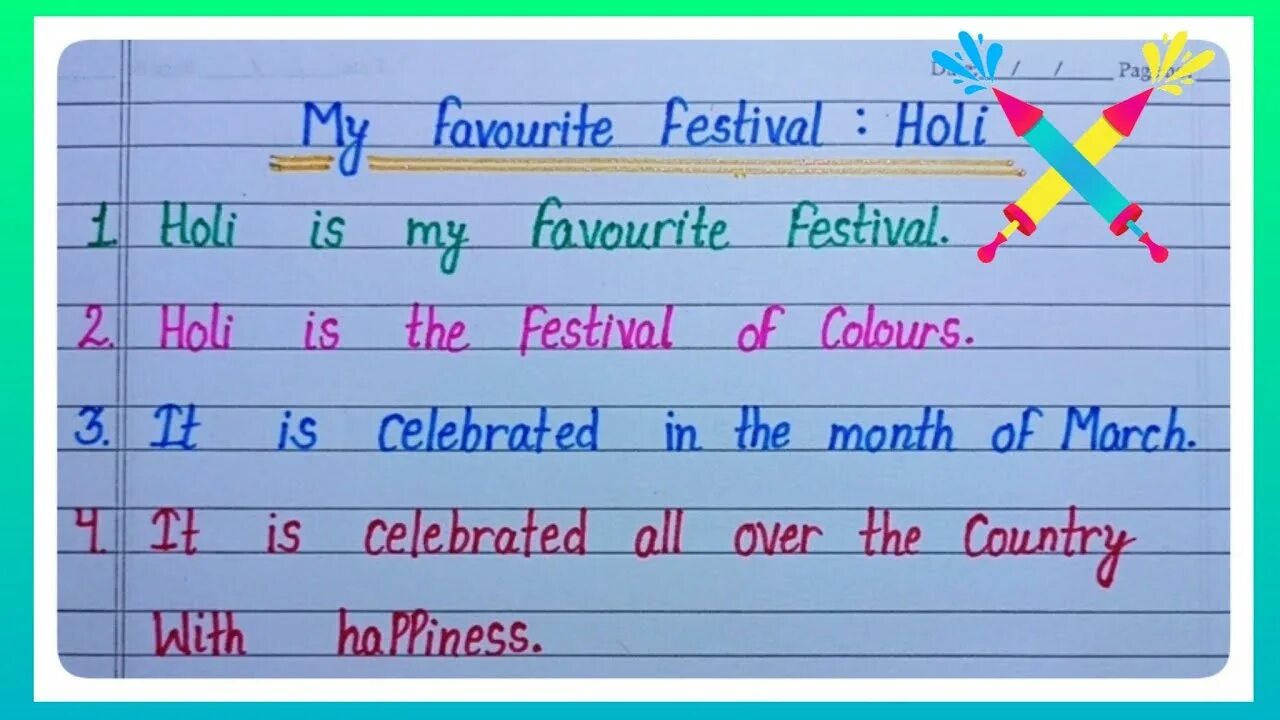 Date: / / Page no.
My favourite Festival : Holi
1. Holi is my favourite Festival.
2. Holi is the Festival of Colours.
3. It is celebrated in the month of March.
4. It is celebrated all over the Country
With happiness.